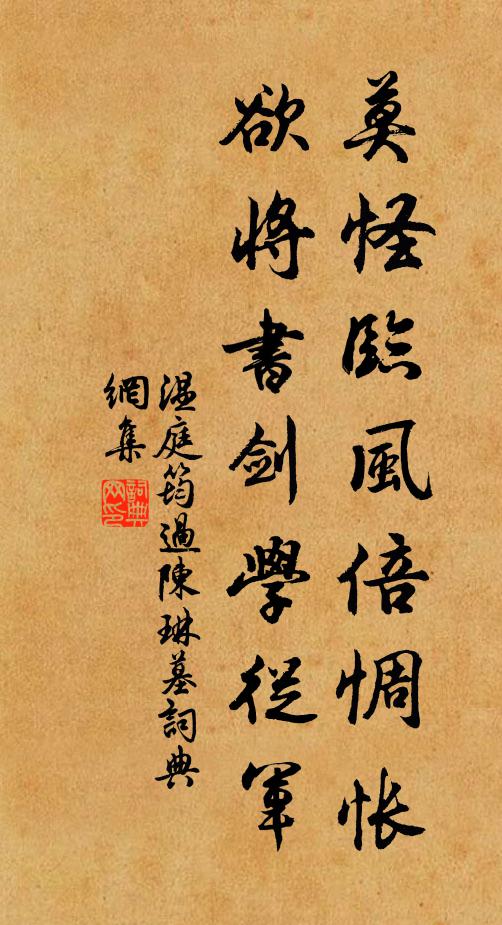 莫怪臨風倍惆怅
欲将書劍學從軍
温庭筠過陳琳墓詞典
網集
詞典
网印